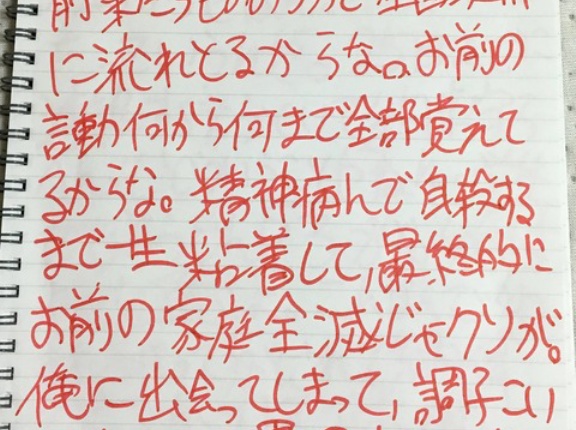 に流れとるからな。お前の
言動何から何まで全部覚えて
るからな。精神病んで自殺する
まで一生粘着して、最終的に
お前の家庭全滅じゃクソが。
俺に出会ってしまって、調子こい